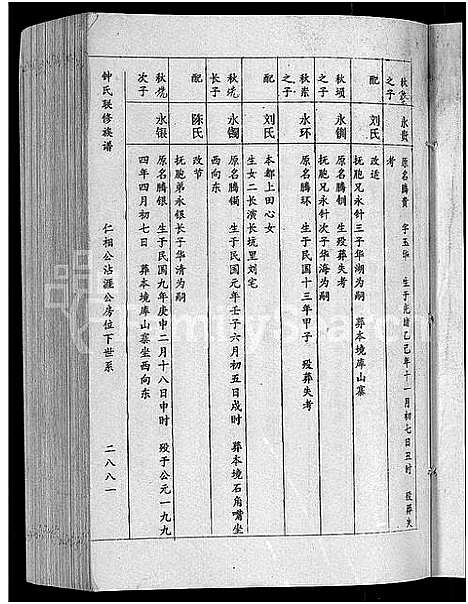 秋 之子 永贵 原名腾贵 字玉华 生于光绪乙巳年十一月初七日丑时 殁葬失
考
配 刘氏 改适
抚胞兄永针三子华湖为嗣 葬本境库山寨
秋埙之子 永钏 原名腾钏 生殁葬失考
抚胞兄永针次子华海为嗣
秋 之子 永环 原名腾环 生于民国十三年甲子 殁葬失考
配 刘氏 本都上田心女
生女二长演长坑里刘宅
秋 长子 永镯 原名腾镯 生于民国元年壬子六月初五日戌时 葬本境石角嘴坐
西向东
配 陈氏 改节
抚胞弟永银长子华清为嗣
秋 次子 永银 原名腾银 生于民国九年庚申二月十八日申时 殁于公元一九九
四年四月初七日 葬本境库山寨坐西向东
钟氏联修族谱 仁相公沾涯公房位下世系 二八八一